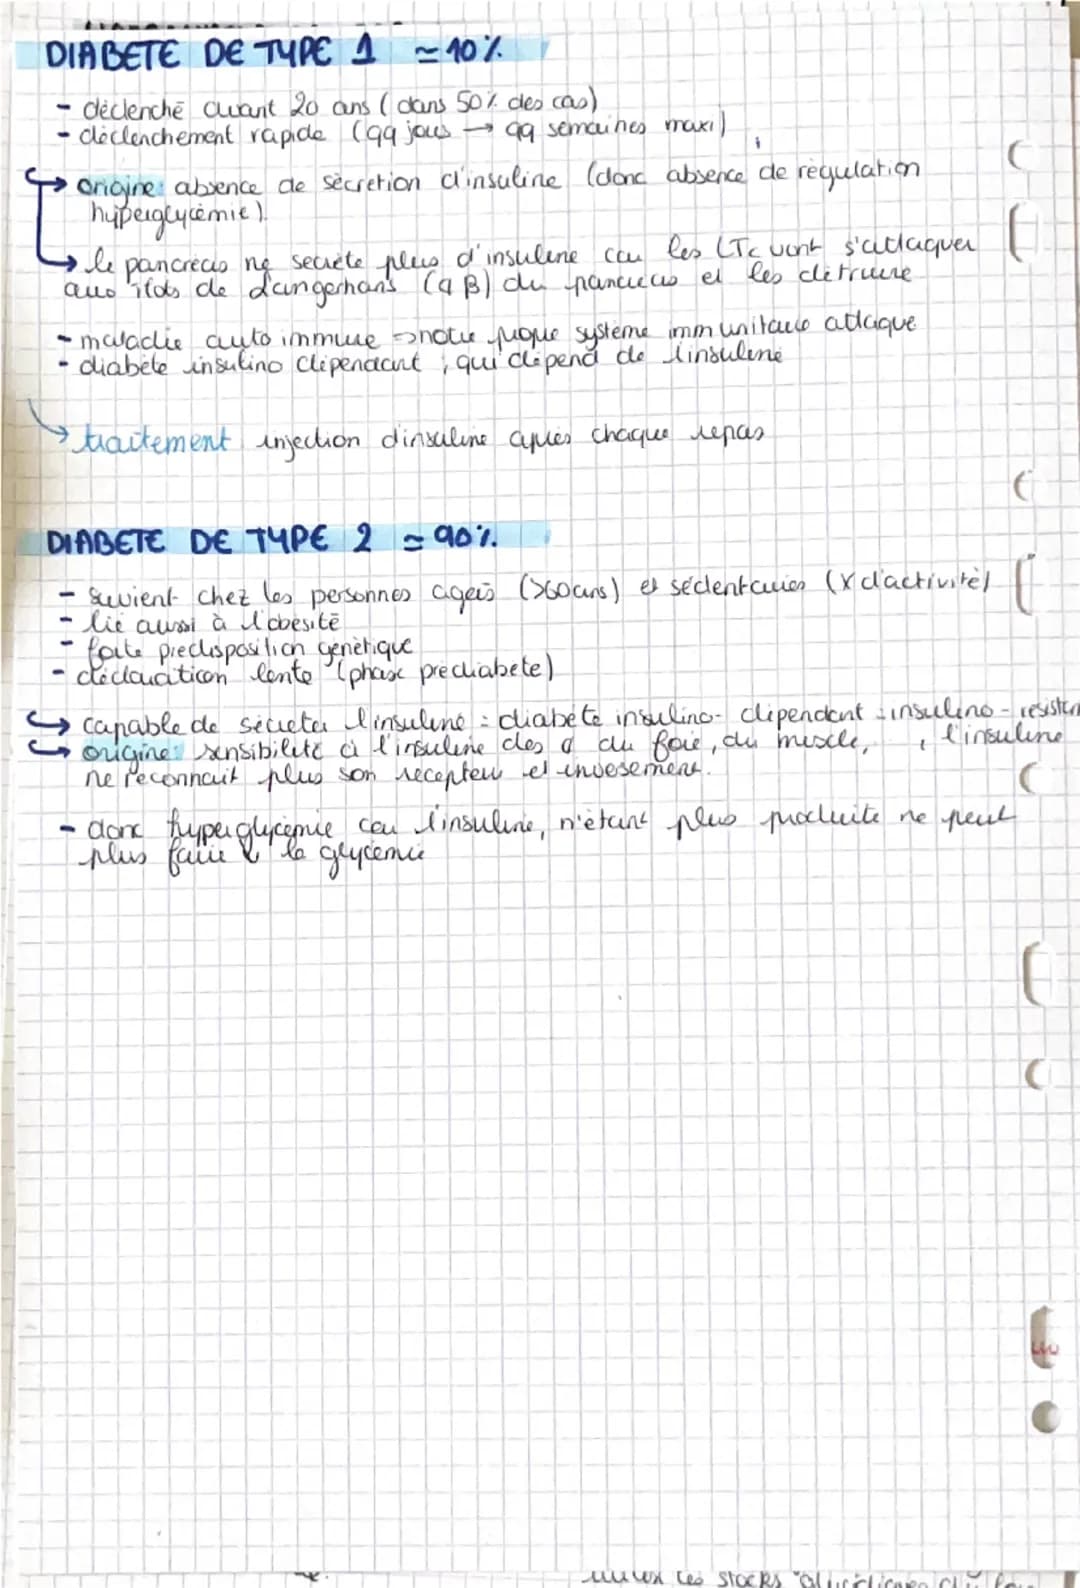 DIABETE DE TYPE 1 ≃ 10%
- déclenché avant 20 ans (dans 50% des cas)
- déclenchement rapide (qq jous → qq semaines maxi)
→ origine: absence de sécretion d'insuline (donc absence de régulation
hyperglycémie).
→ le pancréas ne secrète plus d'insuline car les LTc vont s'attaquer
aux îlots de Langerhans (q β) du pancréas et les détruire
- maladie auto immune → notre propre système immunitaire attaque
- diabète insulino dépendant, qui dépend de l'insuline
→ traitement: injection d'insuline après chaque repas
DIABETE DE TYPE 2 ≃ 90%
- survient chez les personnes agées (>60ans) et sédentaires (X d'activité)
- lié aussi à l'obésité
- forte prédisposition génétique
- déclaration lente (phase prédiabete)
→ capable de sécréter l'insuline : diabète insulino-dépendant : insulino-résistan
→ origine: sensibilité à l'insuline des q du foie, du muscle, , l'insuline
ne reconnait plus son recepteur et inversement.
- donc hyperglycémie car l'insuline, n'étant plus produite ne peut
plus faire ↓ la glycémie
les stocks